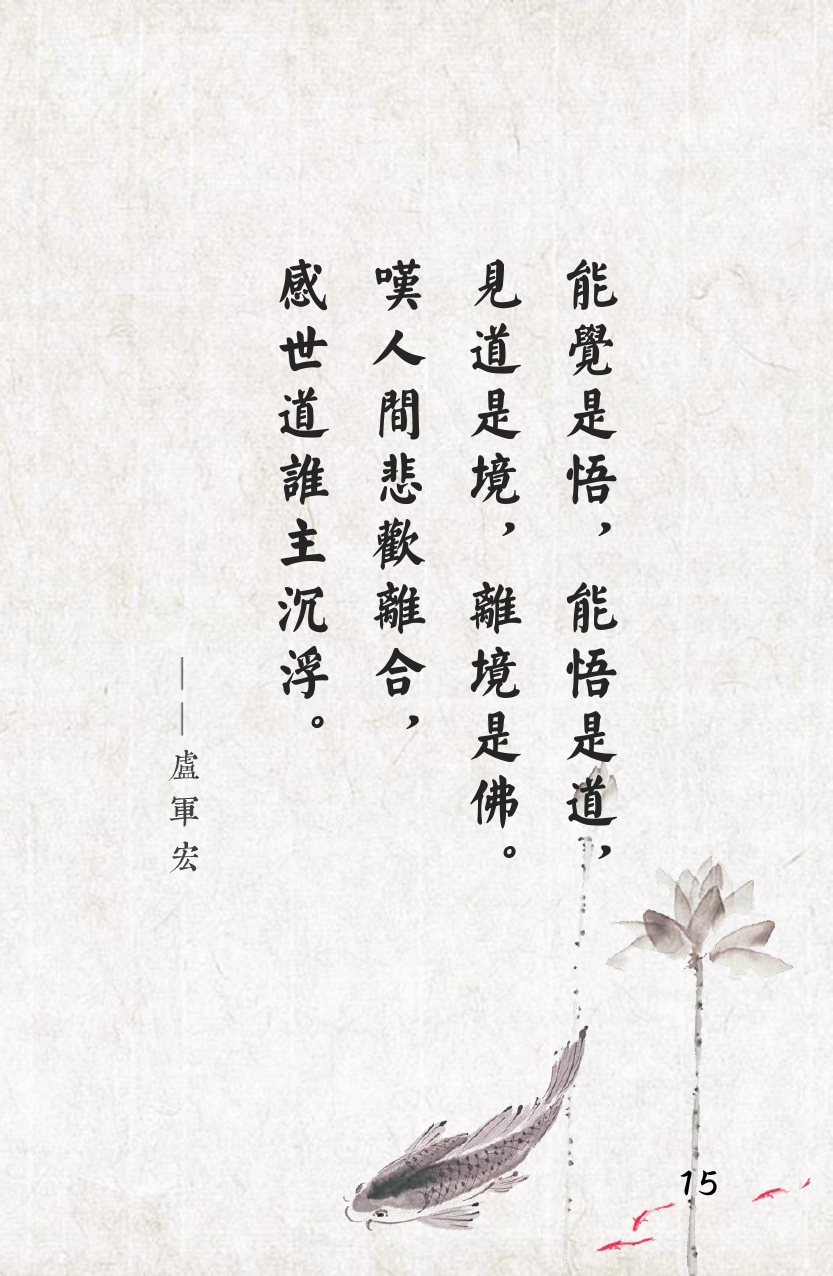 能覺是悟，能悟是道，
見道是境，離境是佛。
嘆人間悲歡離合，
感世道誰主沉浮。
——盧軍宏
15